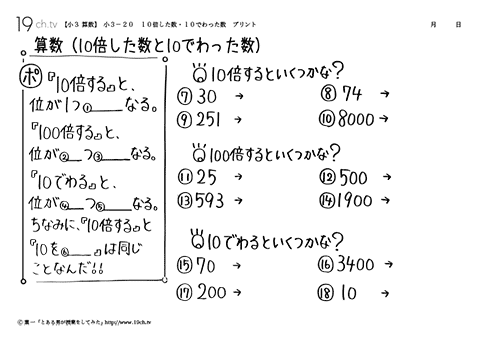 19ch.tv 【小3 算数】 小3-20 10倍した数・10でわった数 プリント 月 日
算数(10倍した数と10でわった数)
ポ 『10倍する』と、
位が1つ①____なる。
『100倍する』と、
位が②__つ③____なる。
『10でわる』と、
位が④__つ⑤____なる。
ちなみに、『100倍する』と
『10を⑥____』は同じ
ことなんだ!!
10倍するといくつかな?
⑦ 30 →
⑧ 74 →
⑨ 251 →
⑩ 8000 →
100倍するといくつかな?
⑪ 25 →
⑫ 500 →
⑬ 593 →
⑭ 1900 →
10でわるといくつかな?
⑮ 70 →
⑯ 3400 →
⑰ 200 →
⑱ 10 →
© 葉一「とある男が授業をしてみた」http://www.19ch.tv